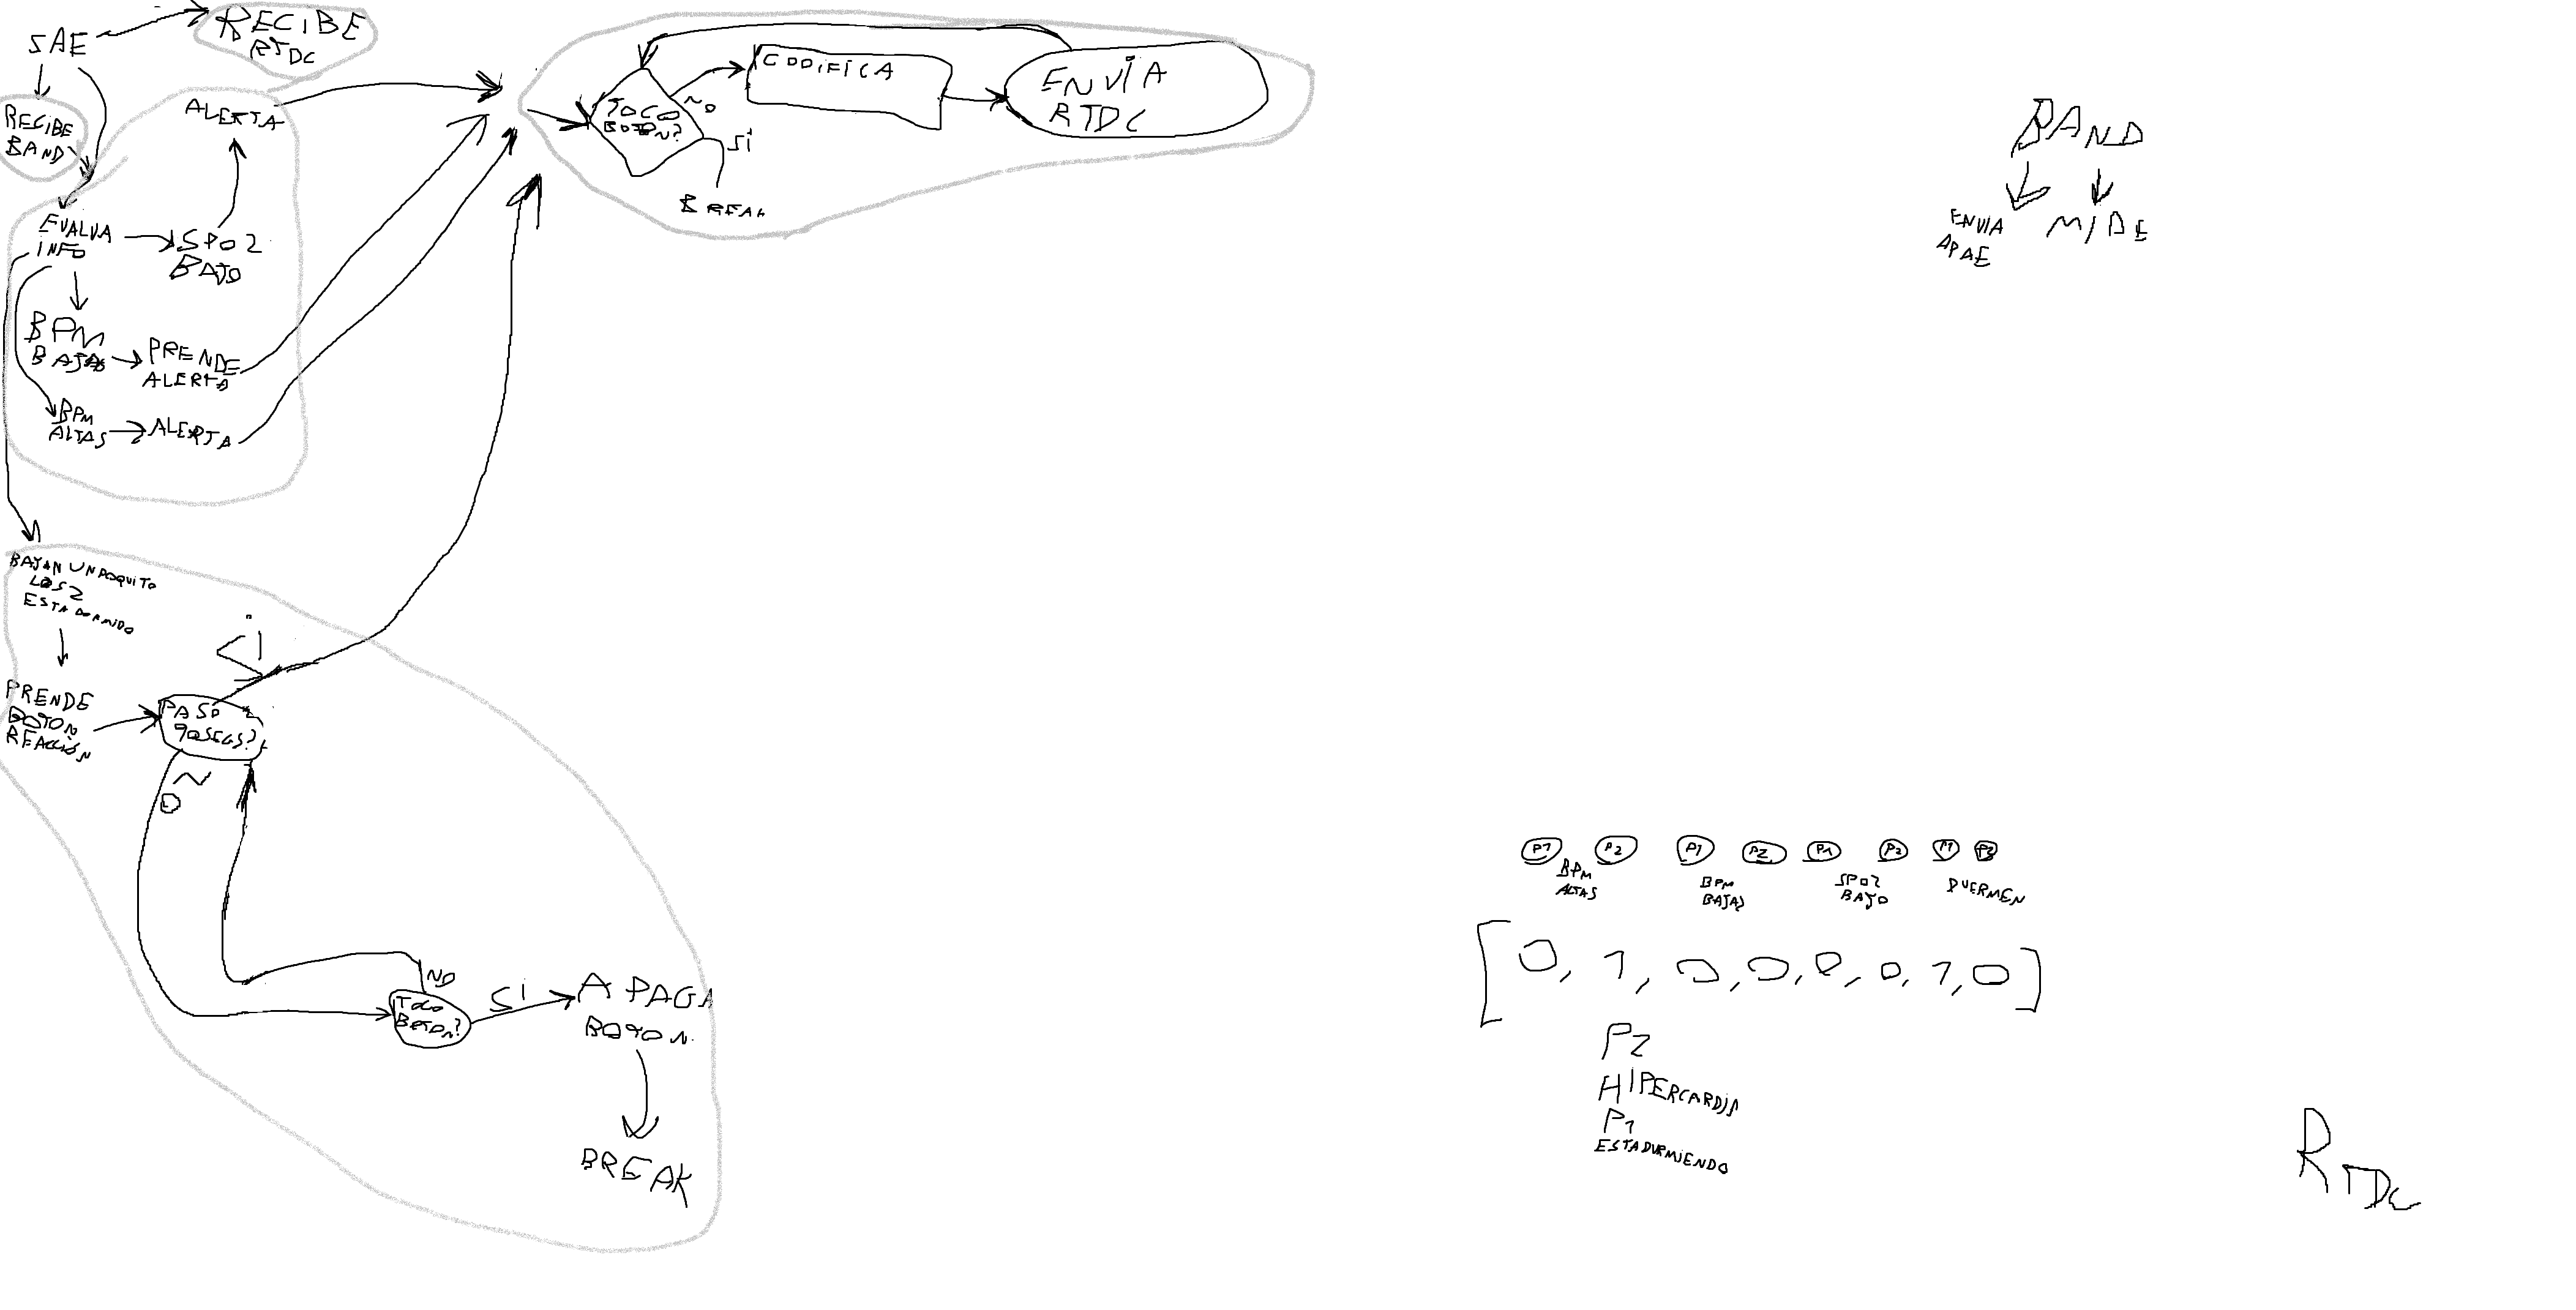 SAE
RECIBE
RTDC
RECIBE
BAND
ALERTA
EVALUA
INFO
SPO2
BAJO
BPM
BAJAS
PRENDE
ALERTA
BPM
ALTAS
ALERTA
TOCO
BOTON?
NO
SI
BREAK
CODIFICA
ENVÍA
RTDC
BAND
ENVIA
APAE
MIDE
BAJAN UN POQUITO
LOS 2
ESTA DORMIDO
PRENDE
BOTON
REACCIÓN
PASO
90SEGS?
Si
NO
TOCO
BOTON?
NO
Si
APAGA
BOTON
BREAK
P1 P2 P1 P2 P1 P2 P1 P2
BPM
ALTAS
BPM
BAJAS
SPO2
BAJO
DUERMEN
[0, 1, 0, 0, 0, 0, 1, 0]
P2
HIPERCARDIA
P1
ESTA DURMIENDO
RTDC